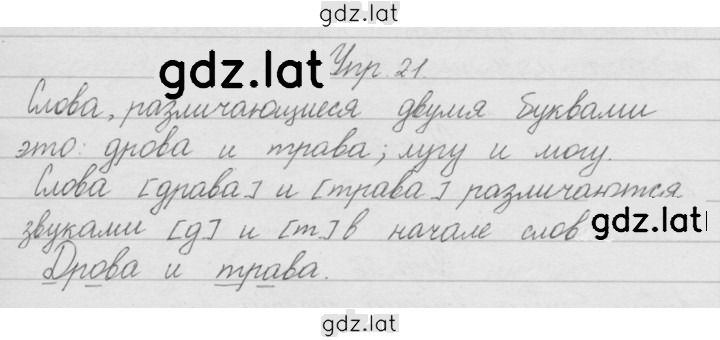 gdz.lat
gdz.lat Упр. 21.
Слова, различающиеся двумя буквами
это: дрова и трава; лугу и могу.
Слова [драва] и [трава] различаются
звуками [д] и [т] в начале слов
gdz.lat
Дрова и трава.
gdz.lat